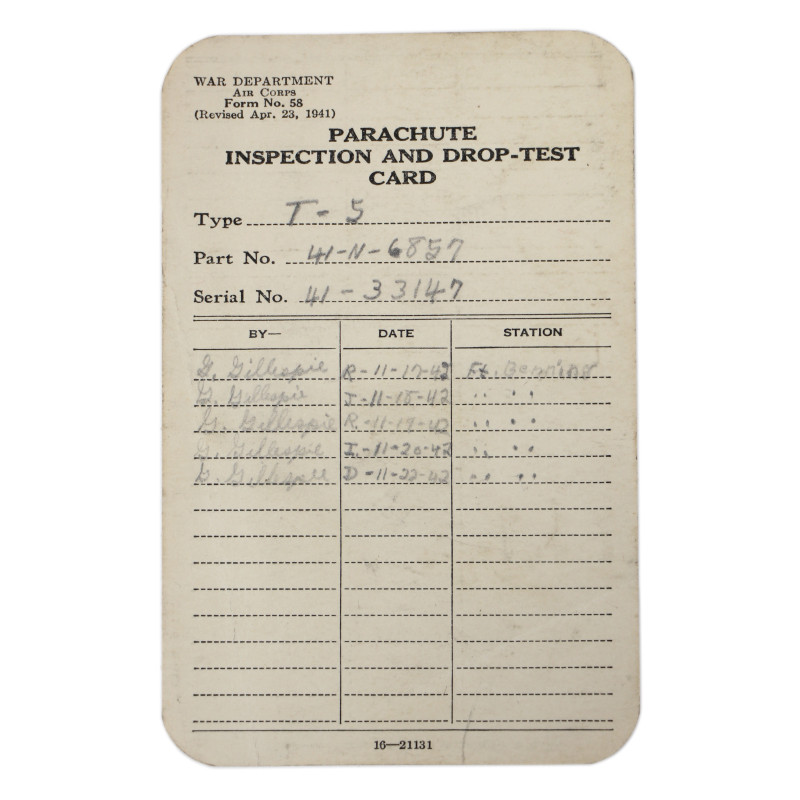 WAR DEPARTMENT
AIR CORPS
Form No. 58
(Revised Apr. 23, 1941)
PARACHUTE
INSPECTION AND DROP-TEST
CARD
Type T-5
Part No. 41-N-6857
Serial No. 41-33147
BY— DATE STATION
G. Gillespie R-11-17-42 Ft. Benning
G. Gillespie I-11-18-42 " "
G. Gillespie R-11-19-42 " "
G. Gillespie I-11-20-42 " "
G. Gillespie D-11-22-42 " "
16—21131